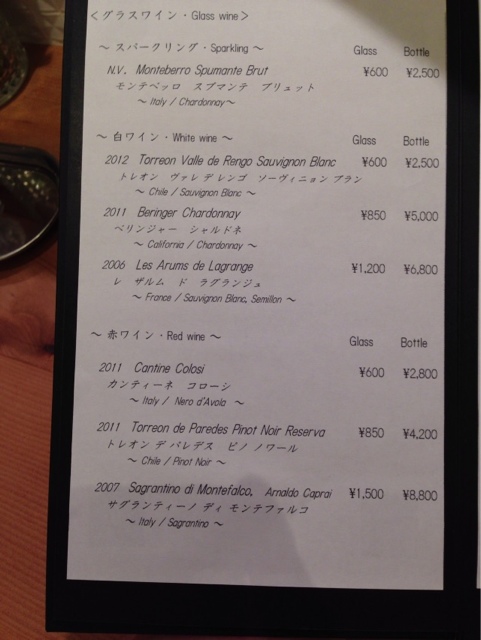 ＜グラスワイン・Glass wine＞
～ スパークリング・Sparkling ～ Glass Bottle
N.V. Monteberro Spumante Brut ¥600 ¥2,500
モンテベッロ スプマンテ ブリュット
～ Italy / Chardonnay～
～ 白ワイン・White wine ～ Glass Bottle
2012 Torreon Valle de Rengo Sauvignon Blanc ¥600 ¥2,500
トレオン ヴァレ デ レンゴ ソーヴィニョン ブラン
～ Chile / Sauvignon Blanc ～
2011 Beringer Chardonnay ¥850 ¥5,000
ベリンジャー シャルドネ
～ California / Chardonnay ～
2006 Les Arums de Lagrange ¥1,200 ¥6,800
レ ザルム ド ラグランジュ
～ France / Sauvignon Blanc, Semillon ～
～ 赤ワイン・Red wine ～ Glass Bottle
2011 Cantine Colosi ¥600 ¥2,800
カンティーネ コローシ
～ Italy / Nero d'Avola ～
2011 Torreon de Paredes Pinot Noir Reserva ¥850 ¥4,200
トレオン デ パレデス ピノ ノワール
～ Chile / Pinot Noir ～
2007 Sagrantino di Montefalco, Arnaldo Caprai ¥1,500 ¥8,800
サグランティーノ ディ モンテファルコ
～ Italy / Sagrantino ～